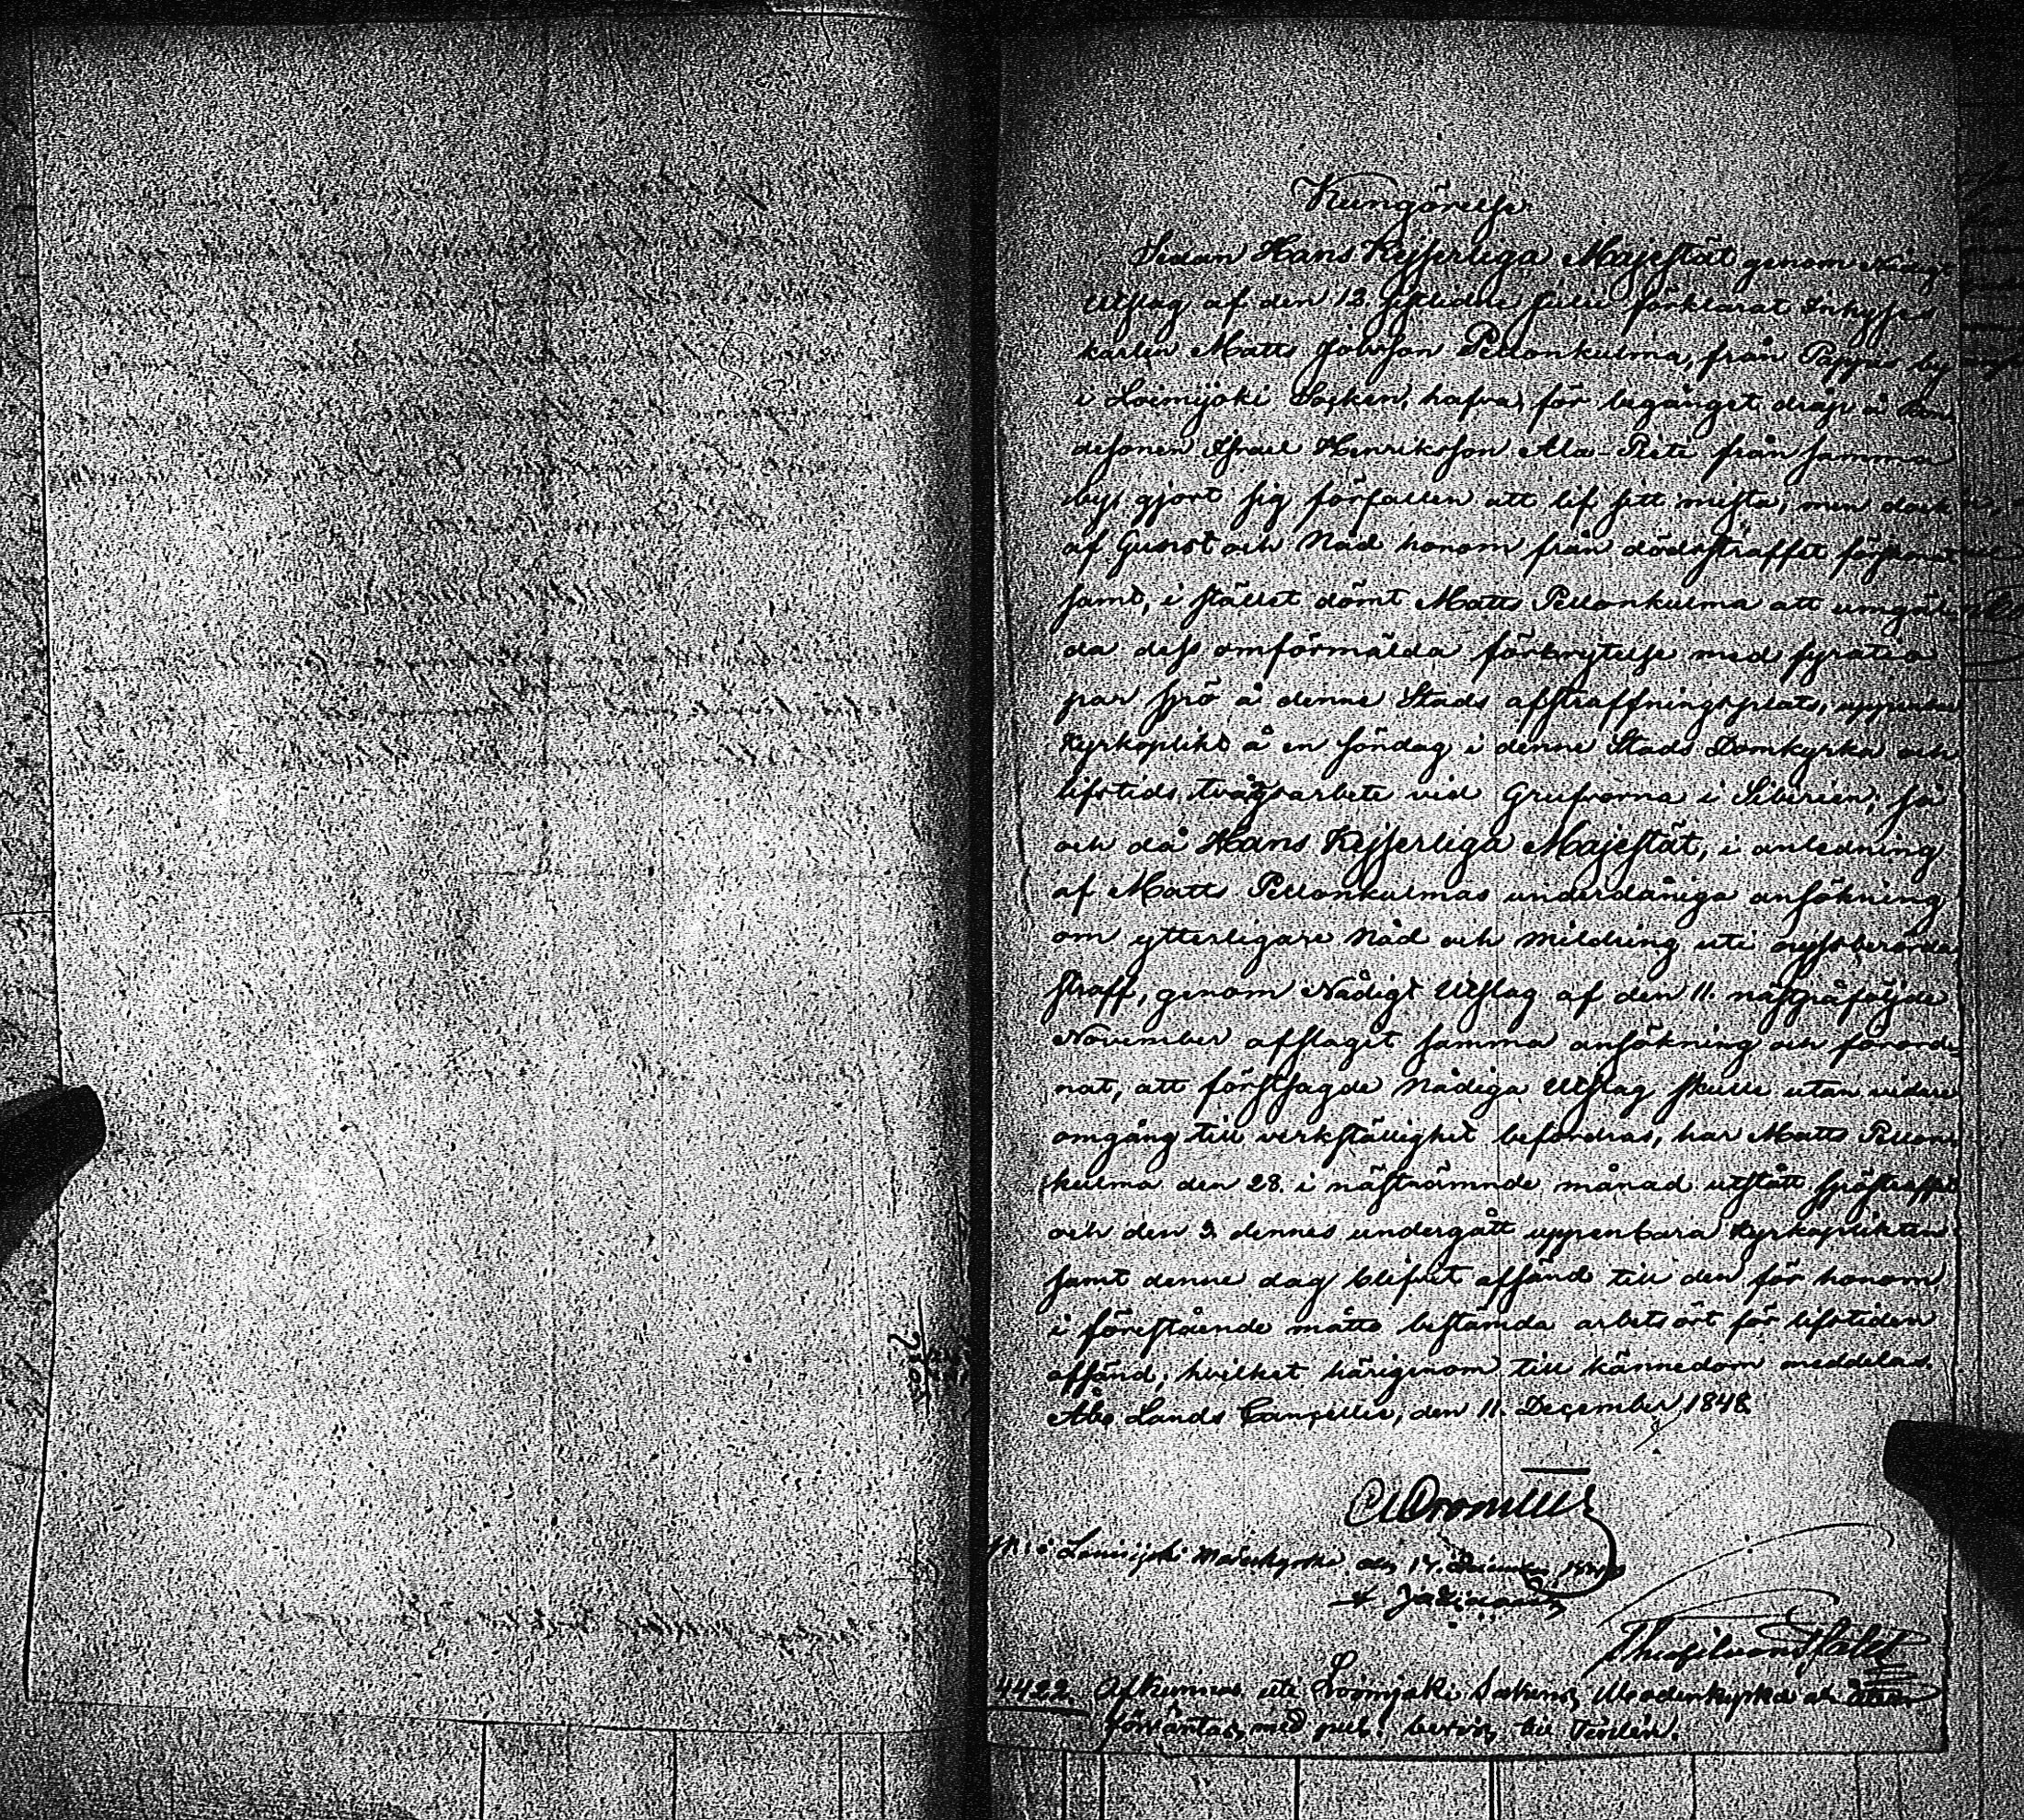 Kungörelse.
Sedan Hans Kejserliga Majestät genom Nådigt
Utslag af den 12. sistlidne Julii förklarat Inhyses
karlen Matts Johnson Pellonkulma, från Pappis by
i Loimijoki Socken, hafva, för begånget dråp å bon
desonen Israel Henriksson Ala-Pieti från samma
by, gjort sig förfallen att lif sitt mista, men dock
af Gunst och Nåd honom från dödsstraffet förskonat
samt, i stället dömt Matts Pellonkulma att umgäl
da dess omförmälda förbrytelse med fyratio
par spö å denne Stads afstraffningsplats, uppenbar
Kyrkoplikt å en söndag i denne Stads Domkyrka och
lifstids tvångsarbete vid Grufvorna i Siberien; så
och då Hans Kejserliga Majestät, i anledning
af Matts Pellonkulmas underdåniga ansökning
om ytterligare Nåd och mildring uti nyssberörda
straff, genom Nådigt Utslag af den 11. näst följde
November afslagit samma ansökning och förord-
nat, att förstsagde Nådiga Utslag skulle utan vidare
omgång till verkställighet befordras, har Matts Pellon-
kulma den 28. i nästnämnde månad utstått spöstraffet
och den 3. dennes undergått uppenbara Kyrkoplikten
samt denne dag blifvit afsänd till den för honom
i förestående måtto bestämda arbetsort för lifstiden
afsänd; hvilket härigenom till kännedom meddelas.
Åbo Lands Cancellie, den 11. December 1848.
i Loimijoki Moderkyrka den 17. December 1848
4422. Afkunnas uti Loimijoki Sockens Moderkyrka och
förväntas med pub. bevis till